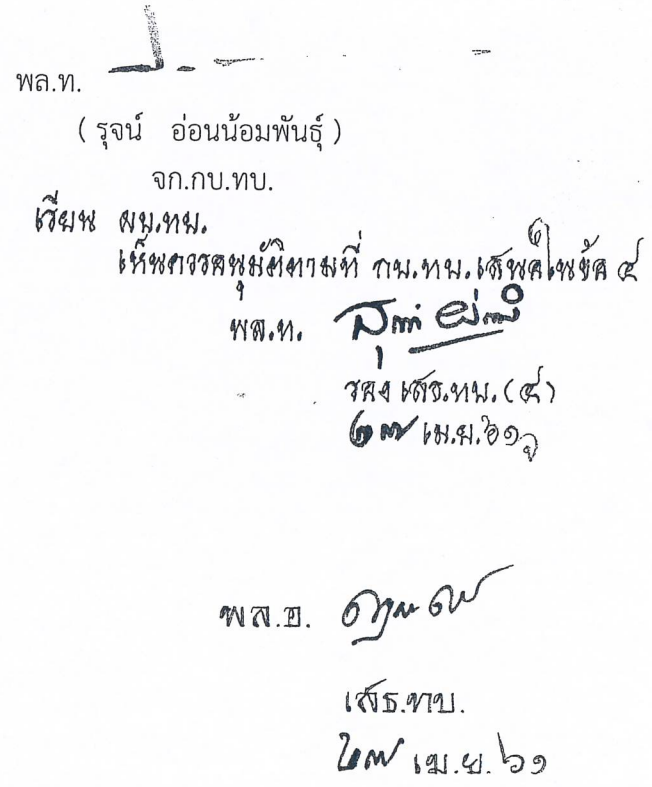 พล.ท.
( รุจน์ อ่อนน้อมพันธุ์ )
จก.กบ.ทบ.
เรียน ผบ.ทบ.
เห็นควรอนุมัติตามที่ กบ.ทบ. เสนอในข้อ ๔
พล.ท.
รอง เสธ.ทบ. (๔)
๒๗ เม.ย. ๖๑
พล.อ.
เสธ.ทบ.
๒๗ เม.ย. ๖๑